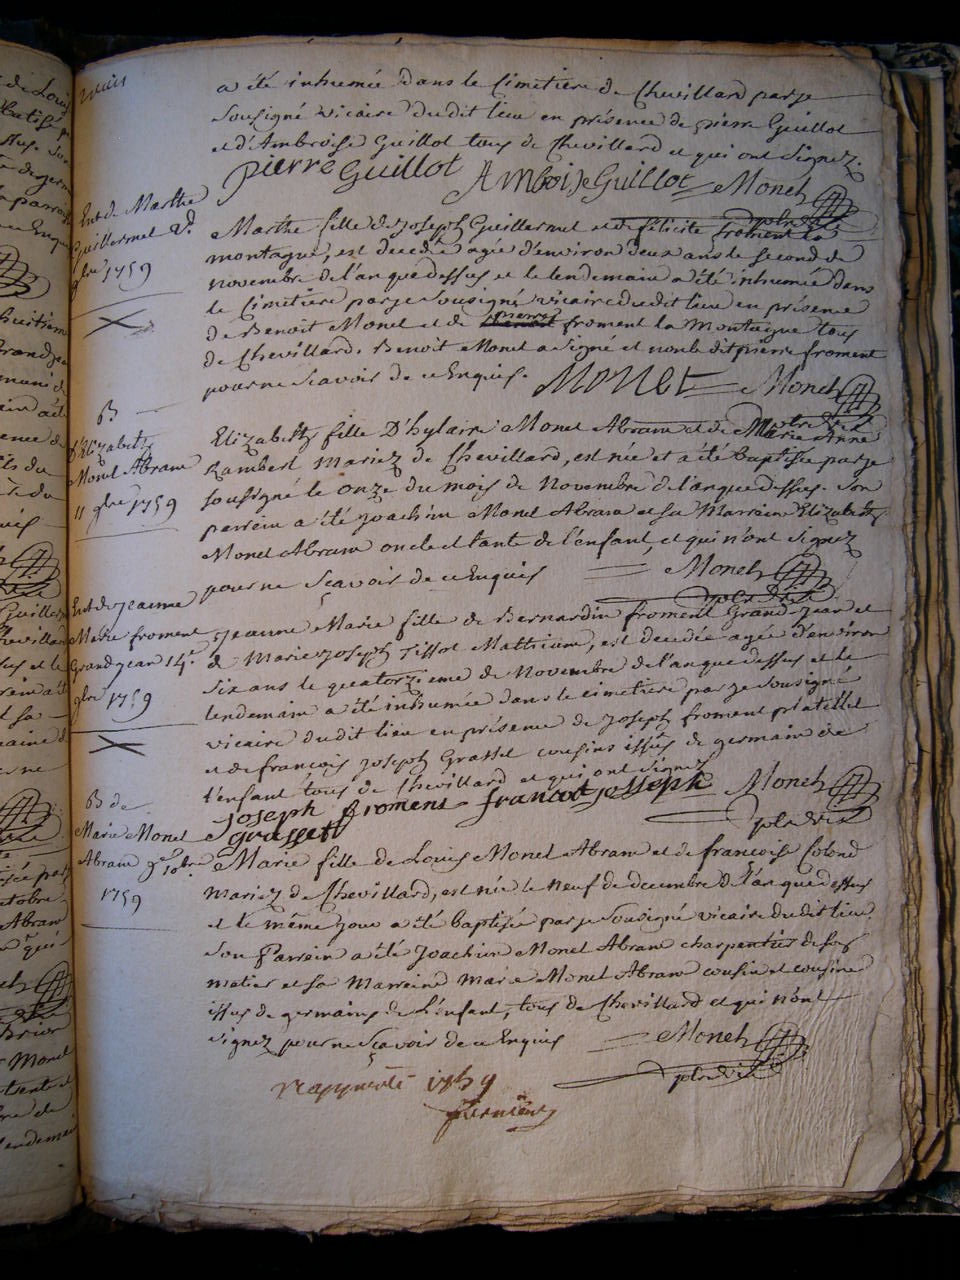 a été inhumée dans le Cimetiere de Chevillard par je
sousigné vicaire dudit lieu en présence de pierre Guillot
et d'Ambroise Guillot tous de Chevillard et qui ont signez.
pierre Guillot Amboise Guillot Monet
Ent. de Marthe
Guillermet 2.
9bre 1759
Marthe fille de joseph Guillermet et de félicité froment la
montagne, est decedée agée d'environ deux ans le second de
novembre de l'an que dessus et le lendemain a été inhumée dans
le Cimetiere par je sousigné vicaire dudit lieu en présence
de Benoit Monet et de pierre froment la Montagne tous
de Chevillard. Benoit Monet a signé et non le dit pierre froment
pour ne scavoir de ce Enquis. Monet Monet
B
d'Elizabeth
Monet Abram
11 9bre 1759
Elizabeth fille D'hylaire Monet Abram et de Marie Anne
Rambert Mariez de Chevillard, est née et a été baptisée par je
sousigné le onze du mois de Novembre de l'an que dessus. Son
parrein a été joachim Monet Abram et sa Marreine Elizabeth
Monet Abram oncle et tante de l'enfant, et qui n'ont signez
pour ne scavoir de ce Enquis Monet
Ent. de jeanne
Marie froment
Grandjean 14e.
9bre 1759
jeanne Marie fille de Bernardin froment Grand jean et
de Marie joseph Tissot Mathieum, est decedée agée d'environ
six ans le quatorzieme de Novembre de l'an que dessus et le
lendemain a été inhumée dans le cimetiere par je sousigné
vicaire dudit lieu en présence de joseph froment
et de francois joseph Grasset cousins issus de germain de
l'enfant tous de Chevillard et qui ont signez
joseph froment francoi josseph Monet
grasset
B de
Marie Monet
Abram 9e Xbre.
1759
Marie fille de Louis Monet Abram et de francoise Colond
mariez de Chevillard, est née le neuf de decembre de l'an que dessus
et le même jour a été baptisée par je sousigné vicaire dudit lieu.
Son Parrein a été Joachim Monet Abram charpentier de son
metier et sa Marreine Marie Monet Abram cousin et cousine
issus de germains de l'enfant, tous de Chevillard et qui n'ont
signez pour ne scavoir de ce Enquis Monet
rapporté 1759